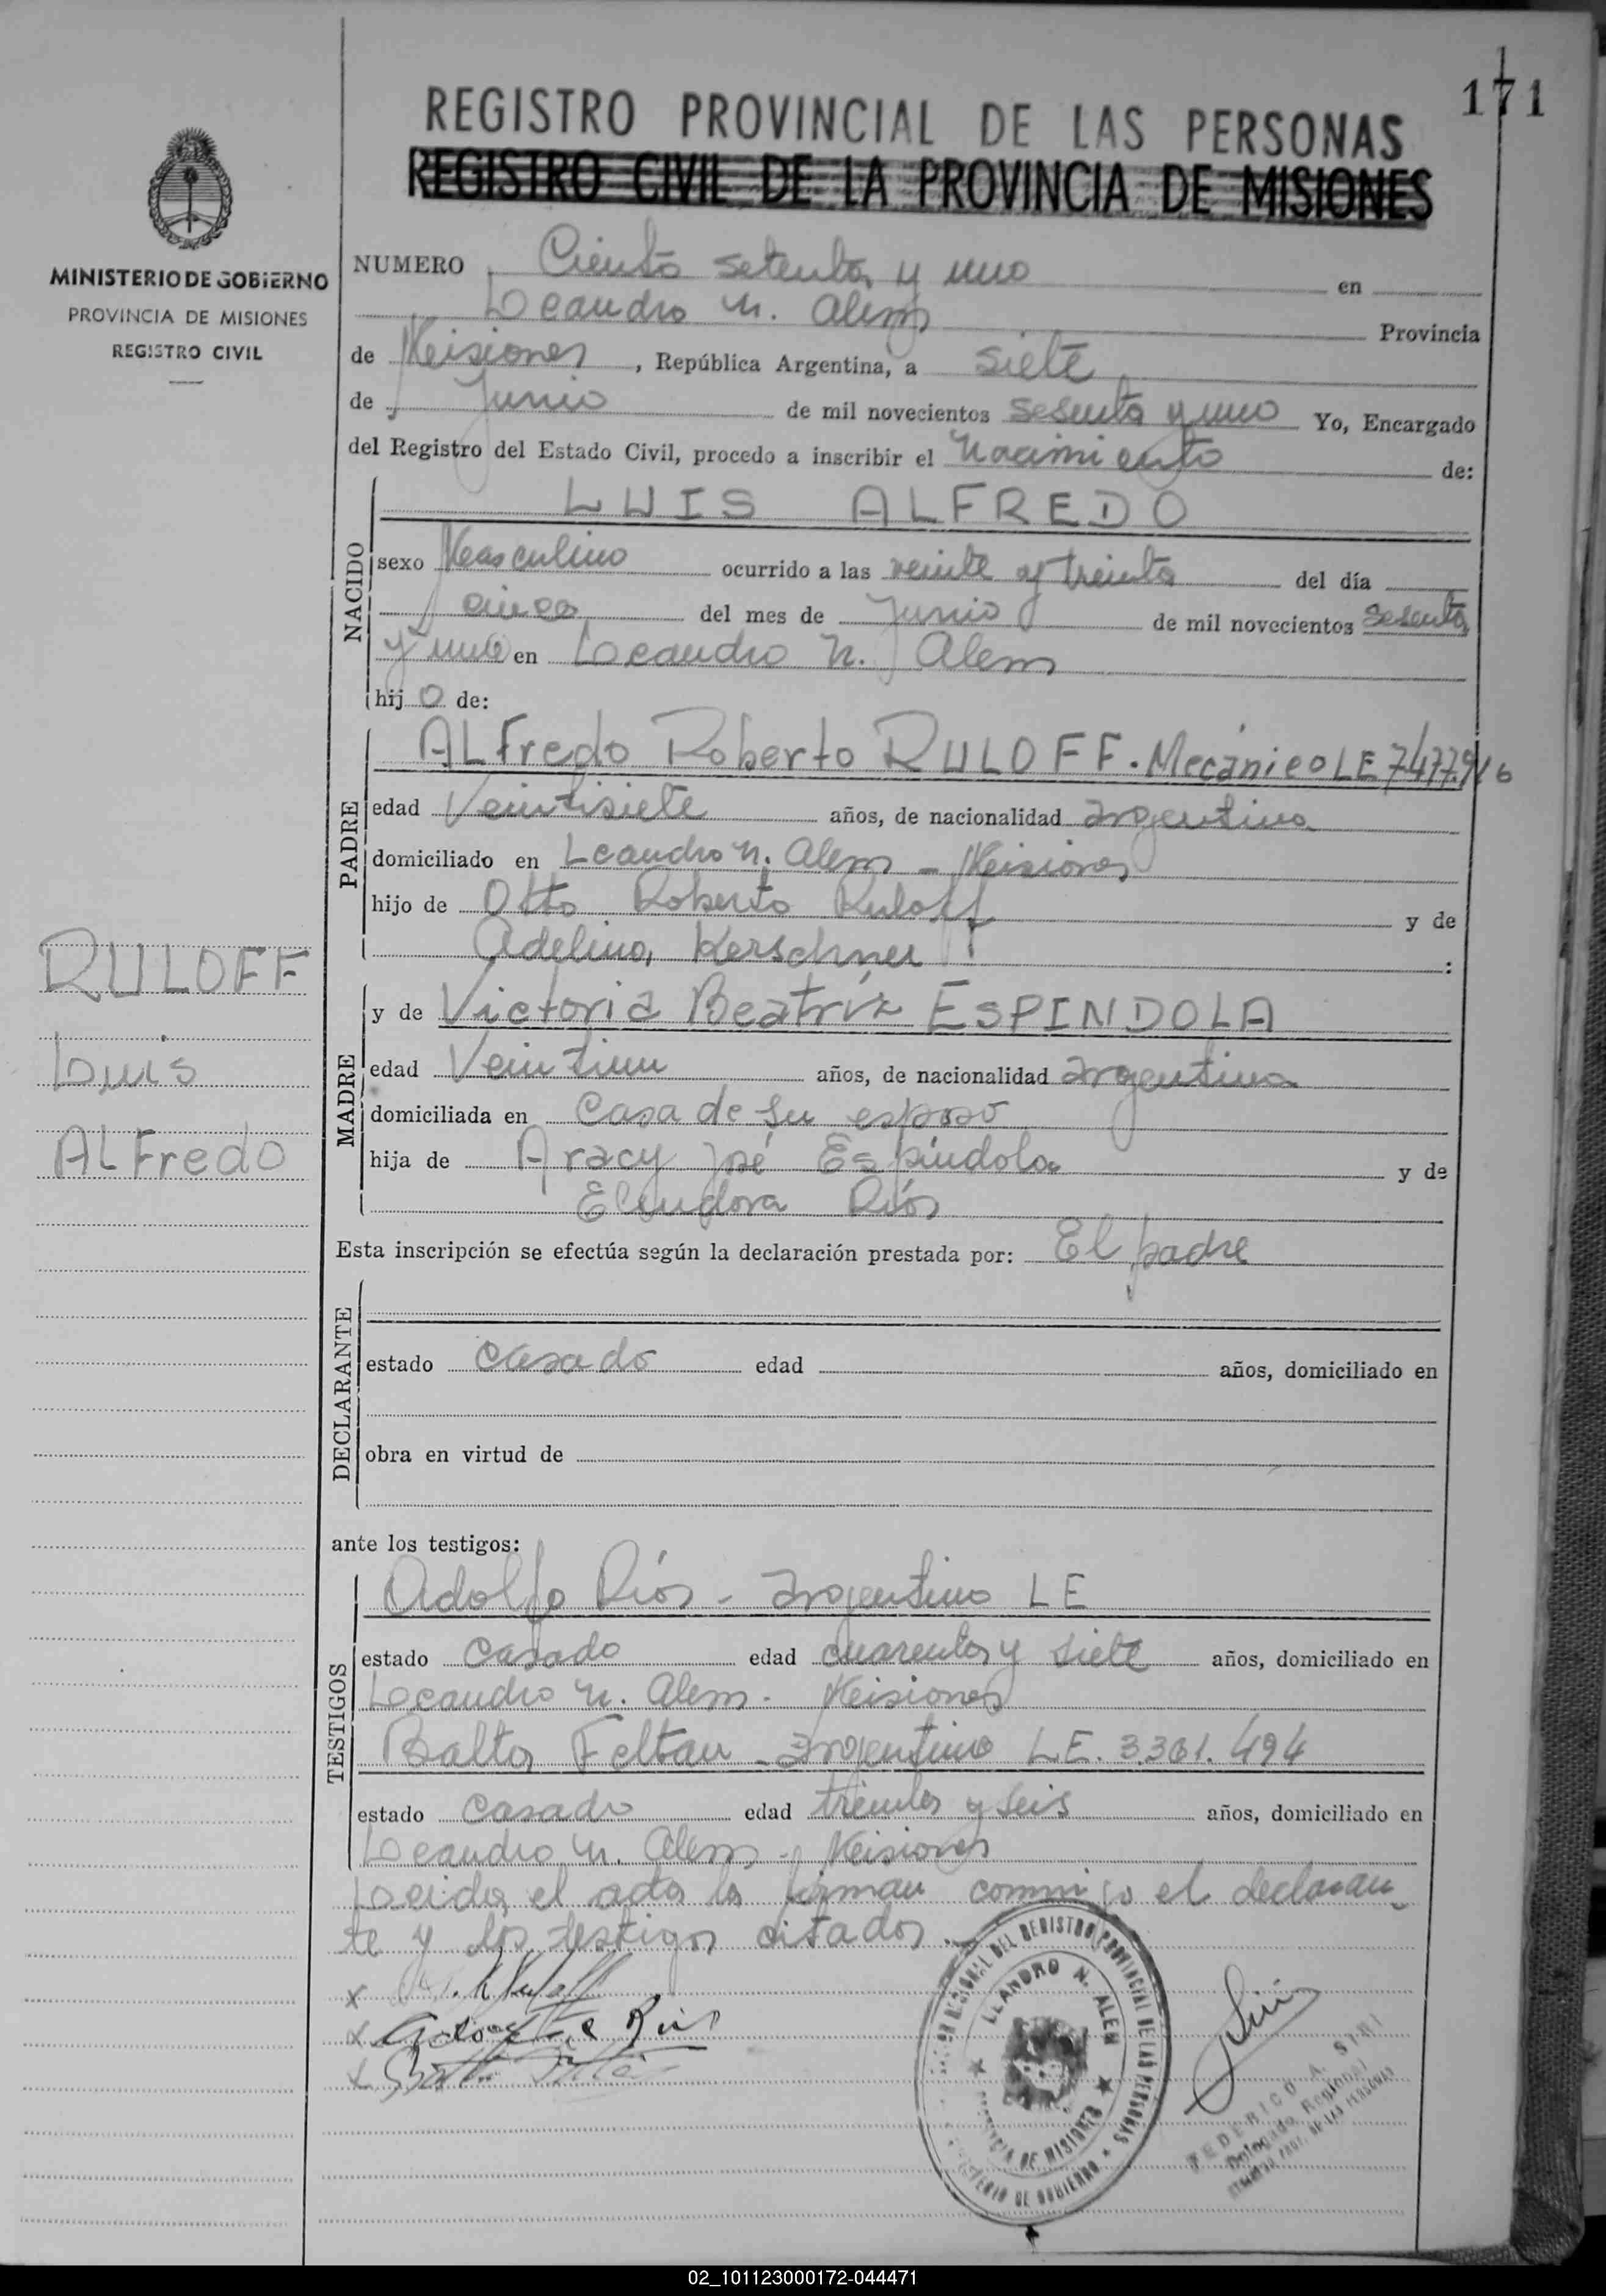 171
REGISTRO PROVINCIAL DE LAS PERSONAS
REGISTRO CIVIL DE LA PROVINCIA DE MISIONES
MINISTERIO DE GOBIERNO
PROVINCIA DE MISIONES
REGISTRO CIVIL
NUMERO Ciento setenta y uno en
Leandro N. Alem Provincia
de Misiones, República Argentina, a siete
de Junio de mil novecientos sesenta y uno Yo, Encargado
del Registro del Estado Civil, procedo a inscribir el Nacimiento de:
NACIDO
LUIS ALFREDO
sexo Masculino ocurrido a las veinte y treinta del día
cinco del mes de Junio de mil novecientos sesenta
y uno en Leandro N. Alem
hijo de:
PADRE
ALFredo Roberto RULOFF. Mecánico LE 7477.916
edad Veintisiete años, de nacionalidad argentina
domiciliado en Leandro N. Alem - Misiones
hijo de Otto Roberto Ruloff y de
Adelina Kerschner :
RULOFF
Luis
ALFredo
MADRE
y de Victoria Beatríz ESPINDOLA
edad Veintiun años, de nacionalidad argentina
domiciliada en Casa de su esposo
hija de Aracy José Espíndola y de
Eleudora Ríos
Esta inscripción se efectúa según la declaración prestada por: El padre
DECLARANTE
estado casado edad años, domiciliado en
obra en virtud de
ante los testigos:
TESTIGOS
Adolfo Ríos - argentino LE
estado casado edad cuarenta y siete años, domiciliado en
Leandro N. Alem - Misiones
Balta Feltan - argentino LE. 3.361.494
estado casado edad treinta y seis años, domiciliado en
Leandro N. Alem - Misiones
Leida el acta la firman conmigo el declaran
te y los testigos citados.
x
x Ríos
x
REGIONAL DEL REGISTRO PROVINCIAL DE LAS PERSONAS
LEANDRO N. ALEM
PROVINCIA DE MISIONES
MINISTERIO DE GOBIERNO
FEDERICO A. SIRI
Delegado Regional
REGISTRO PROV. DE LAS PERSONAS
02_101123000172-044471